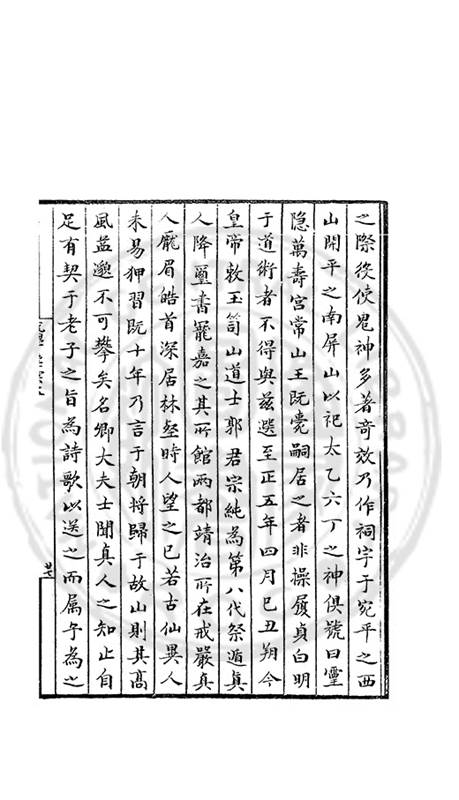 之際役使鬼神多著奇效乃作祠宇于宛平之西
山開平之南屏山以祀太乙六丁之神俱號曰靈
隱萬壽宮常山王既薨嗣居之者非操履貞白明
于道術者不得與兹選至正五年四月巳丑朔今
皇帝敕玉笥山道士郭君宗純為第八代祭遁真
人降璽書寵嘉之其所館兩都靖治所在戒嚴真
人厖眉皓首深居林壑時人望之已若古仙異人
未易狎習既十年乃言于朝將歸于故山則其高
風益邈不可攀矣名卿大夫士聞真人之知止自
足有契于老子之旨為詩歌以送之而属予為之